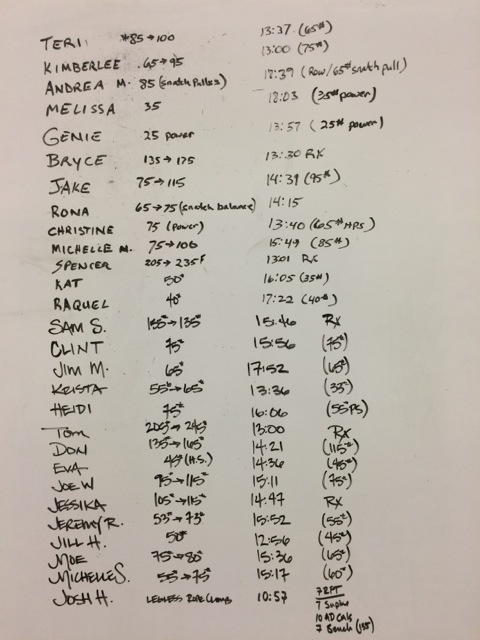 TERI *85→100 13:37 (65#)
KIMBERLEE 65→95 13:00 (75#)
ANDREA M. 85 (snatch pulls) 18:39 (Row/65# snatch pull)
MELISSA 35 18:03 (35# power)
GENIE 25 power 13:57 (25# power)
BRYCE 135→175 13:30 RX
JAKE 75→115 14:39 (95#)
RONA 65→75 (snatch balance) 14:15
CHRISTINE 75 (power) 13:40 (65# HPS)
MICHELLE M. 75→100 15:49 (85#)
SPENCER 205→235F 13:01 RX
KAT 50# 16:05 (35#)
RAQUEL 40# 17:22 (40#)
SAM S. 135# 15:46 RX
CLINT 75# 15:56 (75#)
JIM M. 65# 17:52 (65#)
KRISTA 55#→65# 13:36 (35#)
HEIDI 75# 16:06 (55PS)
TOM 205#→245# 13:00 RX
DON 135#→165# 14:21 (115#)
EVA 45# (H.S.) 14:36 (45#)
JOE W 95#→115# 15:11 (75#)
JESSIKA 105#→115# 14:47 RX
JEREMY R. 53#→73# 15:52 (55#)
JILL H. 50# 12:56 (45#)
MOE 75#→80# 15:36 (65#)
MICHELLE S. 55#→75# 15:17 (60#)
JOSH H. LEGLESS ROPE CLIMB 10:57 7 RFT
10 AD CALS
7 Bench (135)